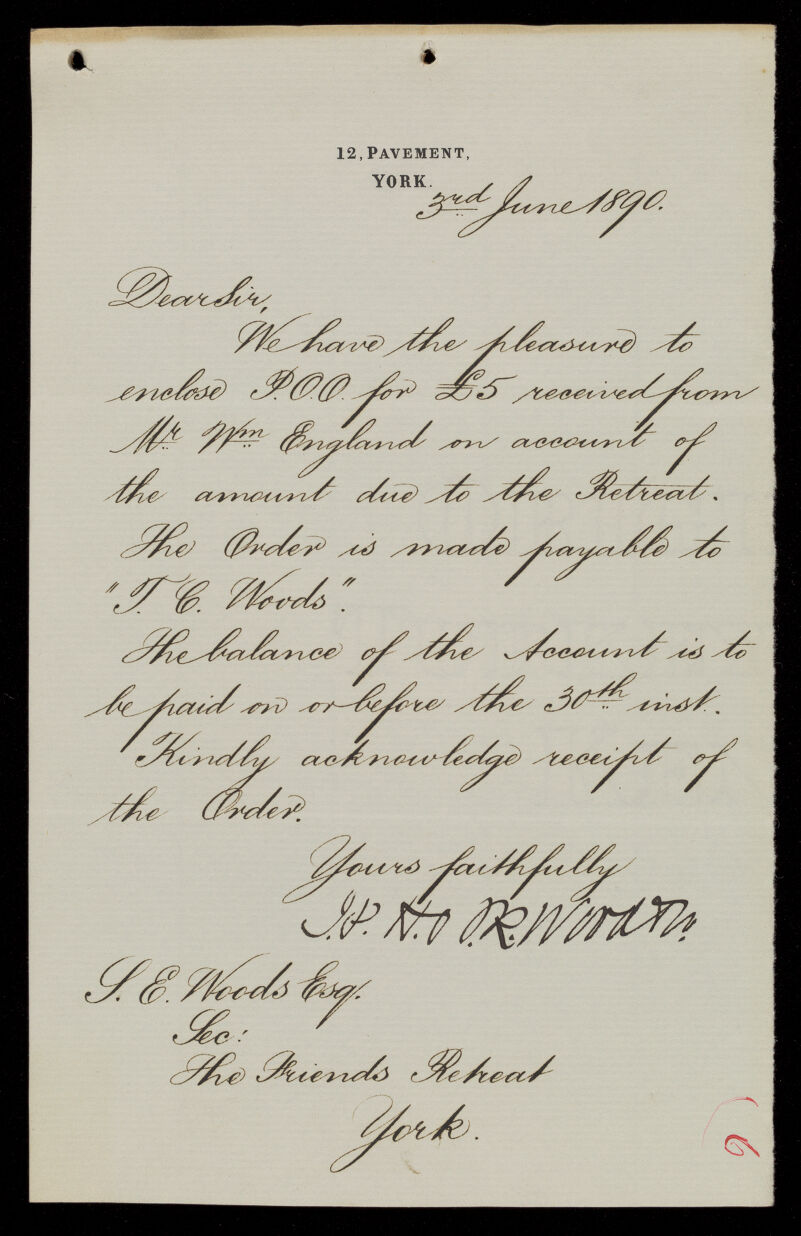 12, PAVEMENT,
YORK.
3rd June 1890.
Dear Sir,
We have the pleasure to
enclose P.O.O. for £5 received from
Mr Wm England on account of
the amount due to the Retreat.
The Order is made payable to
"T. C. Woods".
The balance of the Account is to
be paid on or before the 30th inst.
Kindly acknowledge receipt of
the Order.
Yours faithfully
R. Wood
S. E. Woods Esq.
Sec:
The Friends Retreat
York.